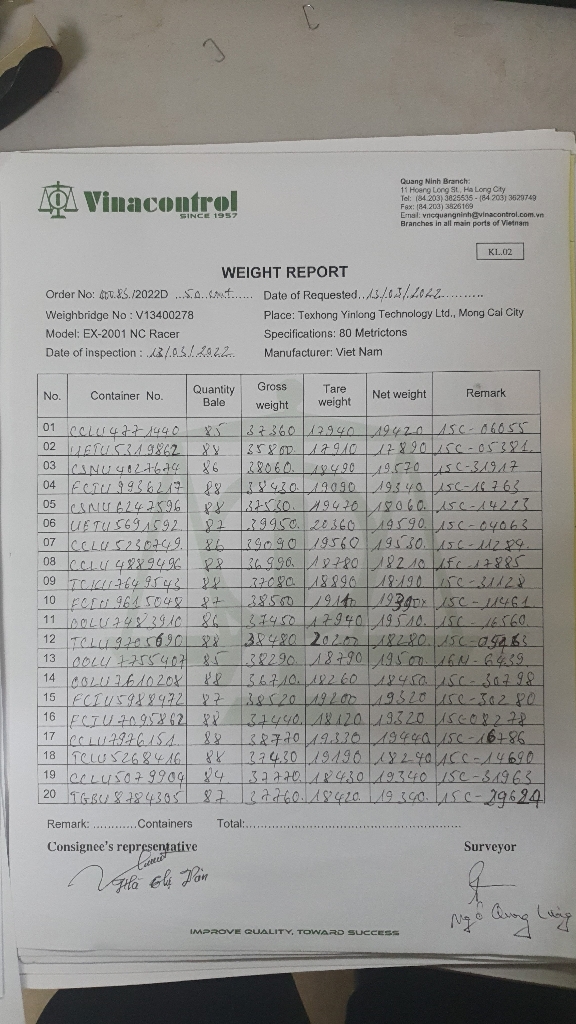 Vinacontrol
SINCE 1957
Quang Ninh Branch:
11 Hoang Long St., Ha Long City
Tel: (84.203) 3825535 - (84.203) 3629749
Fax: (84.203) 3826169
Email: vncquangninh@vinacontrol.com.vn
Branches in all main ports of Vietnam
KL.02
WEIGHT REPORT
Order No: /2022D 50 cont Date of Requested 13/03/2022
Weighbridge No : V13400278 Place: Texhong Yinlong Technology Ltd., Mong Cai City
Model: EX-2001 NC Racer Specifications: 80 Metrictons
Date of inspection : 13/03/2022 Manufacturer: Viet Nam
No. Container No. Quantity Bale Gross weight Tare weight Net weight Remark
01 CCLU4771440 85 37360 17940 19420 15C-06055
02 UETU5319862 88 35800 17910 17890 15C-05381
03 CSNU4027674 86 38060 18490 19570 15C-31917
04 FCIU9936217 88 38430 19090 19340 15C-16763
05 CSNU6247596 88 37530 19470 18060 15C-14223
06 UETU5691592 87 39950 20360 19590 15C-04063
07 CCLU5230749 86 39090 19560 19530 15C-11284
08 CCLU4889496 88 36990 18780 18210 15C-17885
09 TCKU7649543 88 37080 18890 18190 15C-31128
10 FCIU9615048 87 38500 15C-11461
11 OOLU3823910 86 37450 17940 19510 15C-16560
12 TCLU9705690 88 38480 20200 18280
13 OOLU7755407 85 38290 18790 19500 16N-6439
14 OOLU7610208 88 36710 18260 18450 15C-30798
15 FCIU5988472 87 38520 19200 19320 15C-30280
16 FCIU7095862 88 37440 18120 19320 15C08278
17 CCLU7976151 88 38770 19330 19440 15C-16786
18 TCLU5268416 88 37430 19190 18240 15C-14690
19 CCLU5079904 84 37770 18430 19340 15C-31963
20 TGBU8784305 87 37760 18420 19340 15C-29624
Remark: ............Containers Total:..............................
Consignee's representative Surveyor
Ngô Quang
IMPROVE QUALITY, TOWARD SUCCESS